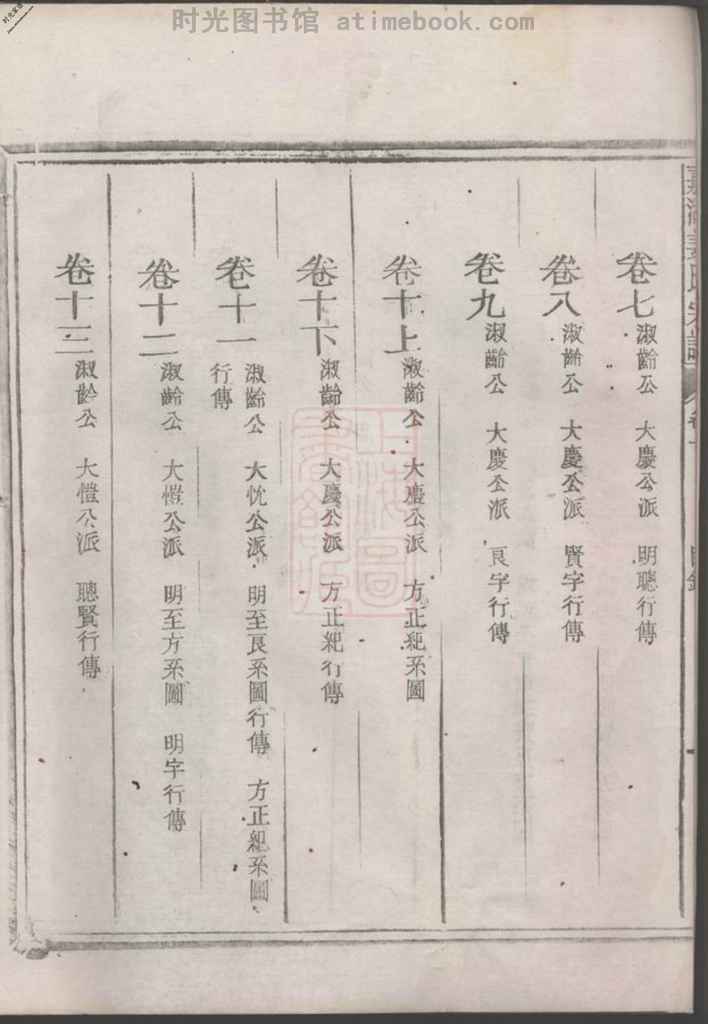 时光图书馆 atimebook.com
卷七 淑齡公 大慶公派 明聽行傳
卷八 淑齡公 大慶公派 賢字行傳
卷九 淑齡公 大慶公派 良字行傳
卷十上 淑齡公 大慶公派 方正紀系圖
卷十下 淑齡公 大慶公派 方正紀行傳
卷十一 淑齡公 大忱公派 明至良系圖行傳 方正紀系圖
行傳
卷十二 淑齡公 大愷公派 明至方系圖 明字行傳
卷十三 淑齡公 大愷公派 聽賢行傳